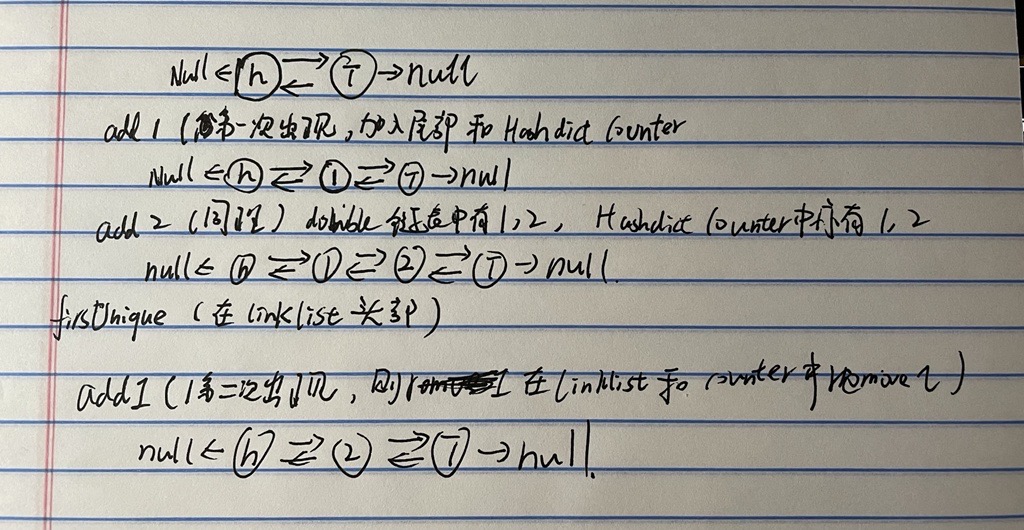 Null ← h ⇄ T → null
add 1 (1第一次出现, 加入尾部 和 Hashdict Counter
Null ← h ⇄ 1 ⇄ T → null
add 2 (同理) double 链表中有 1, 2, Hashdict Counter中亦有 1, 2
null ← h ⇄ 1 ⇄ 2 ⇄ T → null.
firstUnique (在 linklist 头部)
add 1 (1第二次出现, 则 1 在 linklist 和 counter 中 remove 1)
null ← h ⇄ 2 ⇄ T → null.